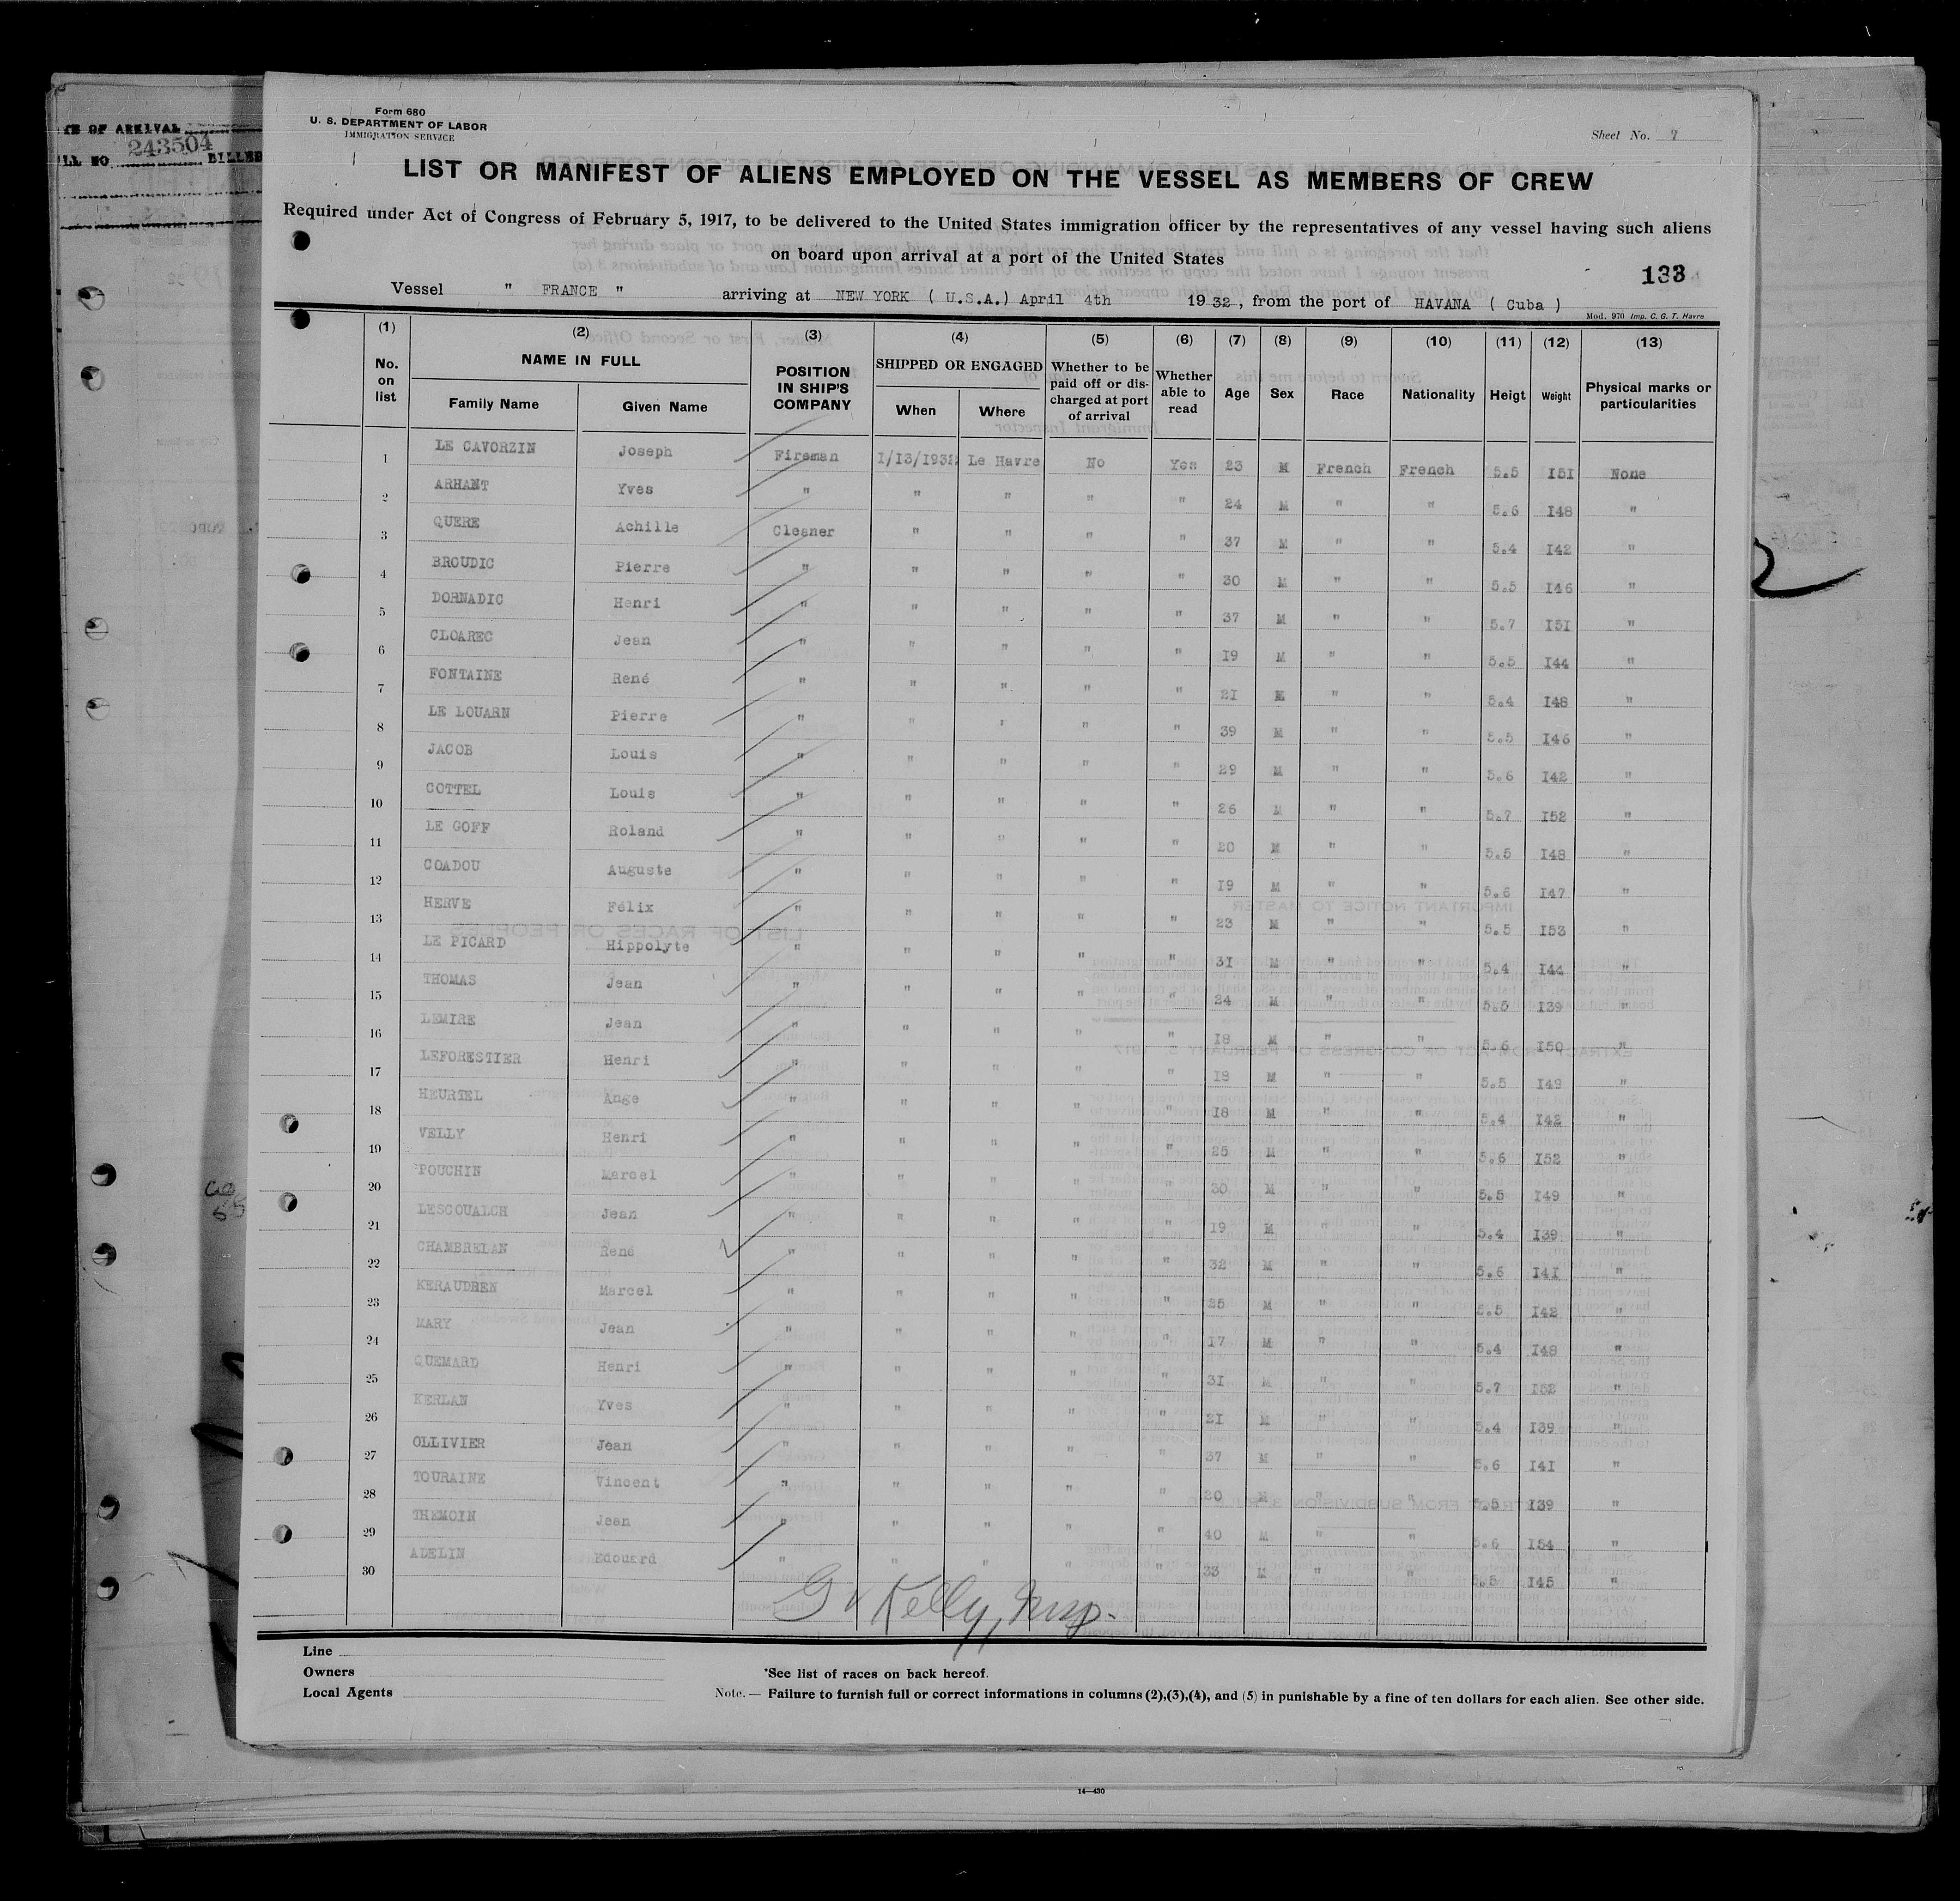 TE OF ARRIVAL
ILL NO. 243504 BILLED
Form 680
U. S. DEPARTMENT OF LABOR
IMMIGRATION SERVICE
Sheet No. 7
LIST OR MANIFEST OF ALIENS EMPLOYED ON THE VESSEL AS MEMBERS OF CREW
Required under Act of Congress of February 5, 1917, to be delivered to the United States immigration officer by the representatives of any vessel having such aliens
on board upon arrival at a port of the United States
133
Vessel " FRANCE " arriving at NEW YORK ( U.S.A.) April 4th 1932, from the port of HAVANA ( Cuba )
Mod. 970 Imp. C. G. T. Havre
(1) (2) (3) (4) (5) (6) (7) (8) (9) (10) (11) (12) (13)
No. on list NAME IN FULL Family Name Given Name POSITION IN SHIP'S COMPANY SHIPPED OR ENGAGED When Where Whether to be paid off or dis- charged at port of arrival Whether able to read Age Sex Race Nationality Heigt Weight Physical marks or particularities
1 LE CAVORZIN Joseph Fireman 1/13/1932 Le Havre No Yes 23 M French French 5.5 151 None
2 ARHANT Yves " " " " " 24 M " " 5.6 148 "
3 QUERE Achille Cleaner " " " " 37 M " " 5.4 142 "
4 BROUDIC Pierre " " " " " 30 M " " 5.5 146 "
5 DORNADIC Henri " " " " " 37 M " " 5.7 151 "
6 CLOAREC Jean " " " " " 19 M " " 5.5 144 "
7 FONTAINE René " " " " " 21 M " " 5.4 148 "
8 LE LOUARN Pierre " " " " " 39 M " " 5.5 146 "
9 JACOB Louis " " " " " 29 M " " 5.6 142 "
10 COTTEL Louis " " " " " 26 M " " 5.7 152 "
11 LE GOFF Roland " " " " " 20 M " " 5.5 148 "
12 COADOU Auguste " " " " " 19 M " " 5.6 147 "
13 HERVE Félix " " " " " 23 M " " 5.5 153 "
14 LE PICARD Hippolyte " " " " " 31 M " " 5.4 144 "
15 THOMAS Jean " " " " " 24 M " " 5.5 139 "
16 LEMIRE Jean " " " " " 18 M " " 5.6 150 "
17 LEFORESTIER Henri " " " " " 18 M " " 5.5 149 "
18 HEURTEL Ange " " " " " 18 M " " 5.4 142 "
19 VELLY Henri " " " " " 25 M " " 5.6 152 "
20 POUCHIN Marcel " " " " " 30 M " " 5.5 149 "
21 LESCOUALCH Jean " " " " " 19 M " " 5.4 139 "
22 CHAMBRELAN René " " " " " 32 M " " 5.6 141 "
23 KERAUDREN Marcel " " " " " 25 M " " 5.5 142 "
24 MARY Jean " " " " " 17 M " " 5.4 148 "
25 QUEMARD Henri " " " " " 31 M " " 5.7 152 "
26 KERLAN Yves " " " " " 21 M " " 5.4 139 "
27 OLLIVIER Jean " " " " " 37 M " " 5.6 141 "
28 TOURAINE Vincent " " " " " 20 M " " 5.5 139 "
29 THEMOIN Jean " " " " " 40 M " " 5.6 154 "
30 ADELIN Edouard " " " " " 33 M " " 5.5 145 "
G V Kelly, Insp.
Line
Owners
Local Agents
*See list of races on back hereof.
Note. — Failure to furnish full or correct informations in columns (2),(3),(4), and (5) in punishable by a fine of ten dollars for each alien. See other side.
14—430